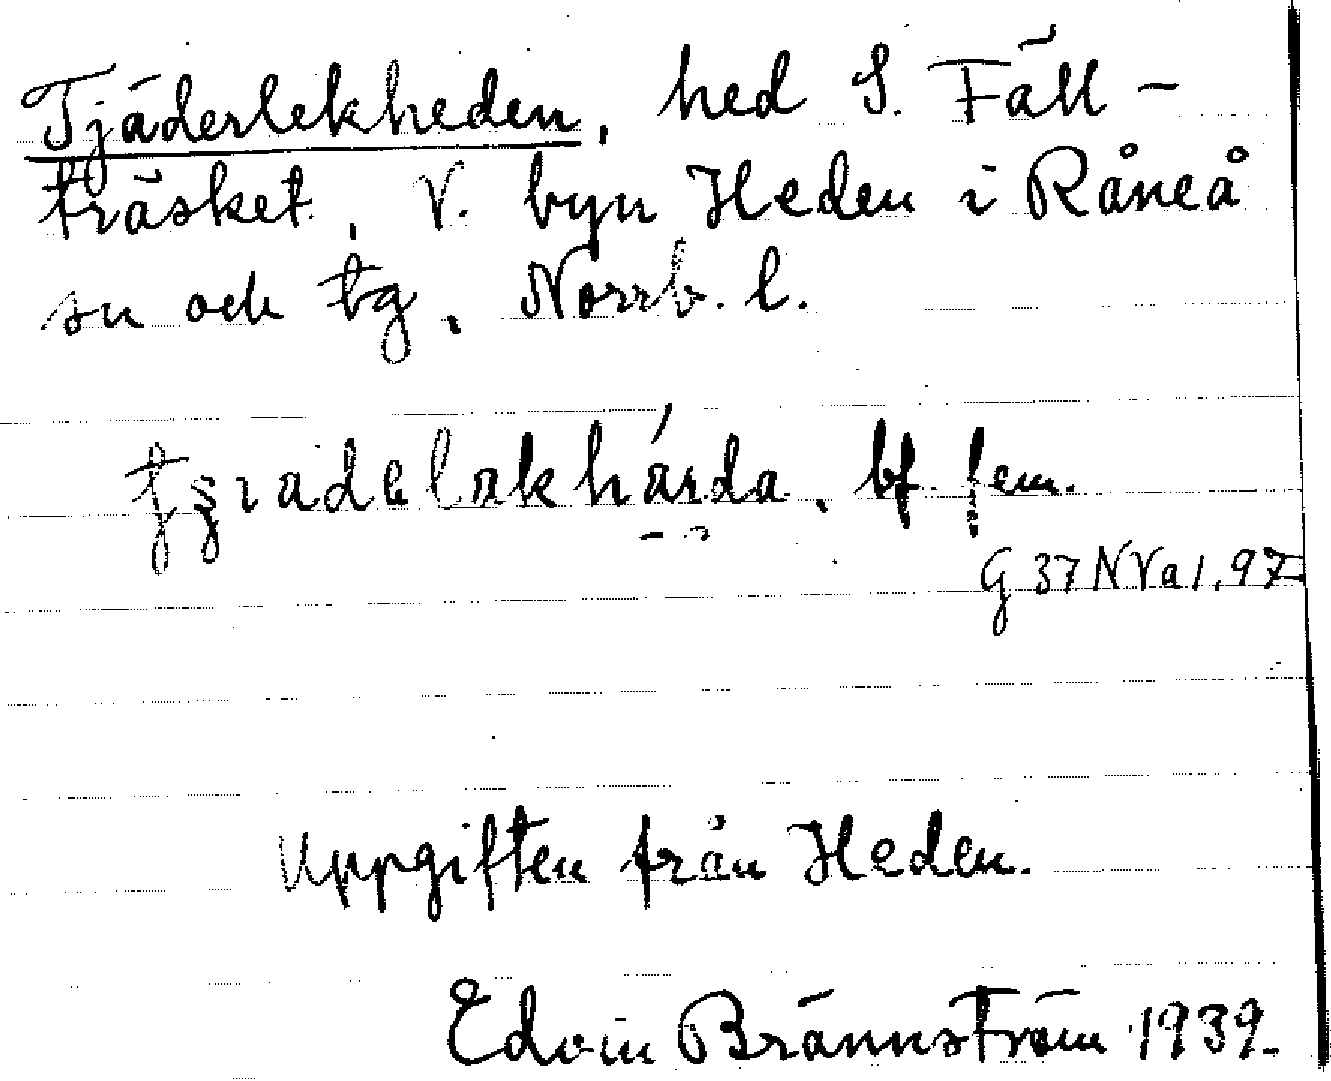 Tjäderlekheden, hed S. Fäll-
träsket, V. byn Heden i Råneå
sn och tg, Norrb. l.
bf. fem.
G 37 N Va 1, 97
Uppgiften från Heden.
Edvin Brännström 1939.